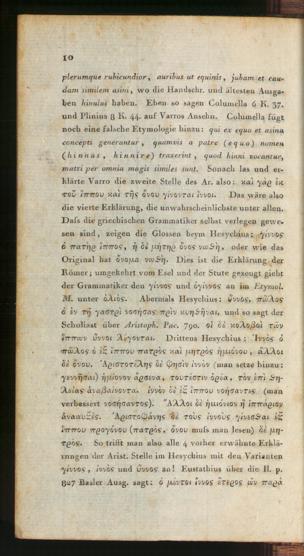 10
plerumque rubicundior, auribus ut equinis, jubam et cau-
dam similem asini, wo die Handschr. und ältesten Ausga-
ben hinulus haben. Eben so sagen Columella 6 K. 37.
und Plinius 8 K. 44. auf Varros Ansehn. Columella fügt
noch eine falsche Etymologie hinzu: qui ex equo et asina
concepti generantur, quamvis a patre (equo) nomen
(hinnus, hinnire) traxerint, quod hinni vocantur,
matri per omnia magis similes sunt. Sonach las und er-
klärte Varro die zweite Stelle des Ar. also: καὶ γὰρ ἐκ
τοῦ ἵππου καὶ τῆς ὄνου γίνονται ἵννοι. Das wäre also
die vierte Erklärung, die unwahrscheinlichste unter allen.
Daſs die griechischen Grammatiker selbst verlegen gewe-
sen sind, zeigen die Glossen beym Hesychius: γίννος
ὁ πατὴρ ἵππος, ἡ δὲ μήτηρ ὄνος νωθη. oder wie das
Original hat ὄνομα νωθη. Dies ist die Erklärung der
Römer; umgekehrt vom Esel und der Stute gezeugt giebt
der Grammatiker den γίννος und ὄγιννος an im Etymol.
M. unter ὁλιός. Abermals Hesychius: ὕννος, πῶλος
ὁ ἐν τῇ γαστρὶ νοσήσας πρὶν κυηθῆναι, und so sagt der
Scholiast über Aristoph. Pac. 790. οἱ δὲ κολοβοὶ τῶν
ἵππων ὕννοι λέγονται. Drittens Hesychius: Ἰννὸς ὁ
πῶλος ὁ ἐξ ἵππου πατρὸς καὶ μητρὸς ἡμιόνου, ἄλλοι
δὲ ὄνου. Ἀριστοτέλης δὲ φησὶν ἰννὸν (man setze hinzu:
γεννῆσαι) ἡμίονον ἄρσενα, τουτέστιν ὀρέα, τὸν ἐπὶ θη-
λείας ἀναβαίνοντα. ἰννὸν δὲ ἐξ ἵππου νοήσαντις (man
verbessert νοσήσαντος). Ἄλλοι δὲ ἡμίονον ἢ ἱππάριον
ἀναυξές. Ἀριστοφάνης δὲ τοὺς ἰννοὺς γίνεσθαι ἐξ
ἵππου προγόνου (πατρὸς, ὄνου muſs man lesen) δὲ μη-
τρός. So trifft man also alle 4 vorher erwähnte Erklä-
rungen der Arist. Stelle im Hesychius mit den Varianten
γίννος, ἰννός und ὕννος an! Eustathius über die Il. p.
827 Basler Ausg. sagt: ὁ μέντοι ἵννος ἕτερος ὢν παρὰ